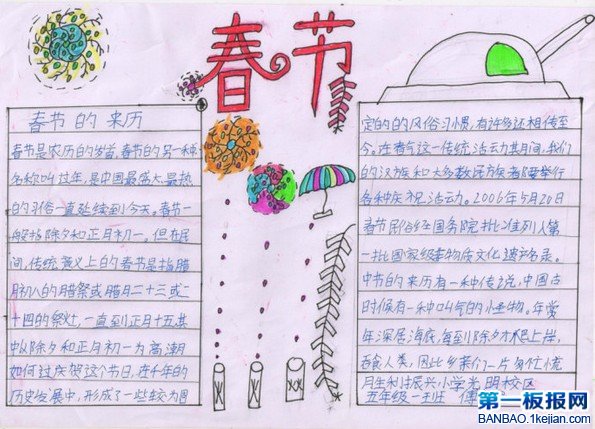 春节
春节的来历
春节是农历的岁首,春节的另一种
名称叫过年,是中国最盛大、最热
的习俗一直延续到今天。春节一
般指除夕和正月初一。但在民
间,传统意义上的春节是指腊
月初八的腊祭或腊月二十三或二
十四的祭灶,一直到正月十五其
中以除夕和正月初一为高潮
如何过庆贺这个节日,在千年的
历史发展中,形成了一些较为固
定的的风俗习惯,有许多还相传至
今。在这一传统活动其间,我们
的汉族和大多数民族都要举行
各种庆祝活动。2006年5月20日
春节民俗经国务院批准列入第
一批国家级非物质文化遗产名录。
中节的来历有一种传说,中国古
时候有一种叫的小怪物。年
年深居海底,每到除夕才爬上岸,
吞食人类,因此乡亲们一片有忙
振兴小学光明校区
五年级一班 傅
第一板报网
BANBAO.1kejian.com